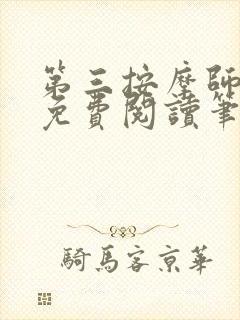 第三按摩師
免費閱讀筆
騎馬客京華